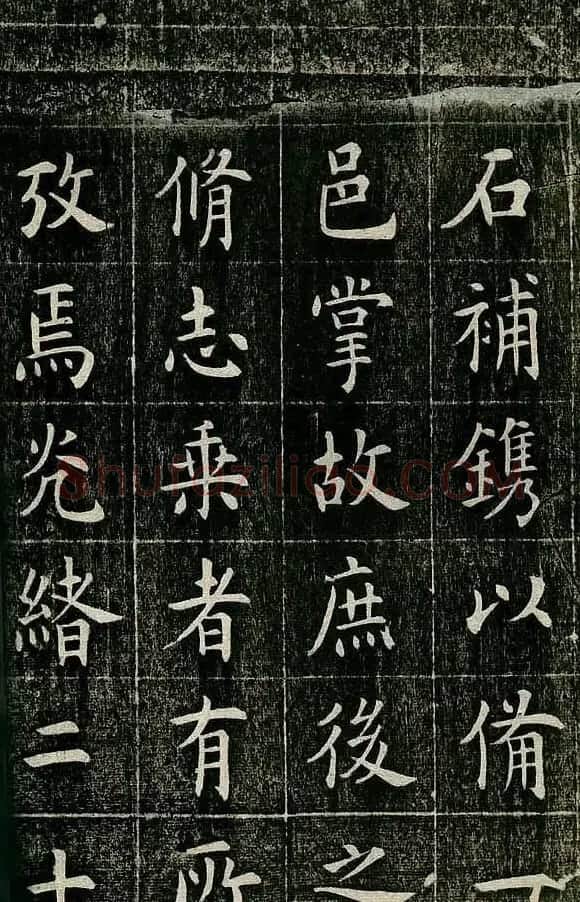 石補鐫以備
邑掌故庶後之
脩志乗者有所
攷焉光緒二十
Shufaziliao.COM